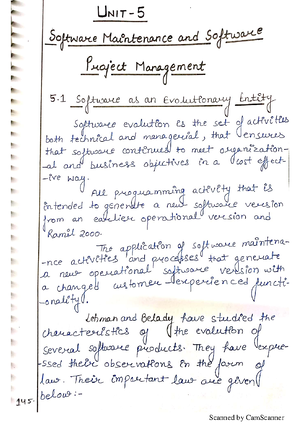 UNIT-5
Software Maintenance and Software
Project Management
5.1 Software as an Evolutionary Entity
Software evolution is the set of activities
both technical and managerial, that ensures
that software continues to meet organization-
-al and business objectives in a cost effect-
-ive way.
All programming activity that is
intended to generate a new software version
from an earlier operational version and
Ramil 2000.
The application of software maintena-
-nce activities and processes that generate
a new operational software version with
a changed customer-experienced functi-
-onality.
Lehman and Belady have studied the
characteristics of the evolution of
several software products. They have expre-
-ssed their observations in the form of
law. Their important law are given
below:-
145.
Scanned by CamScanner